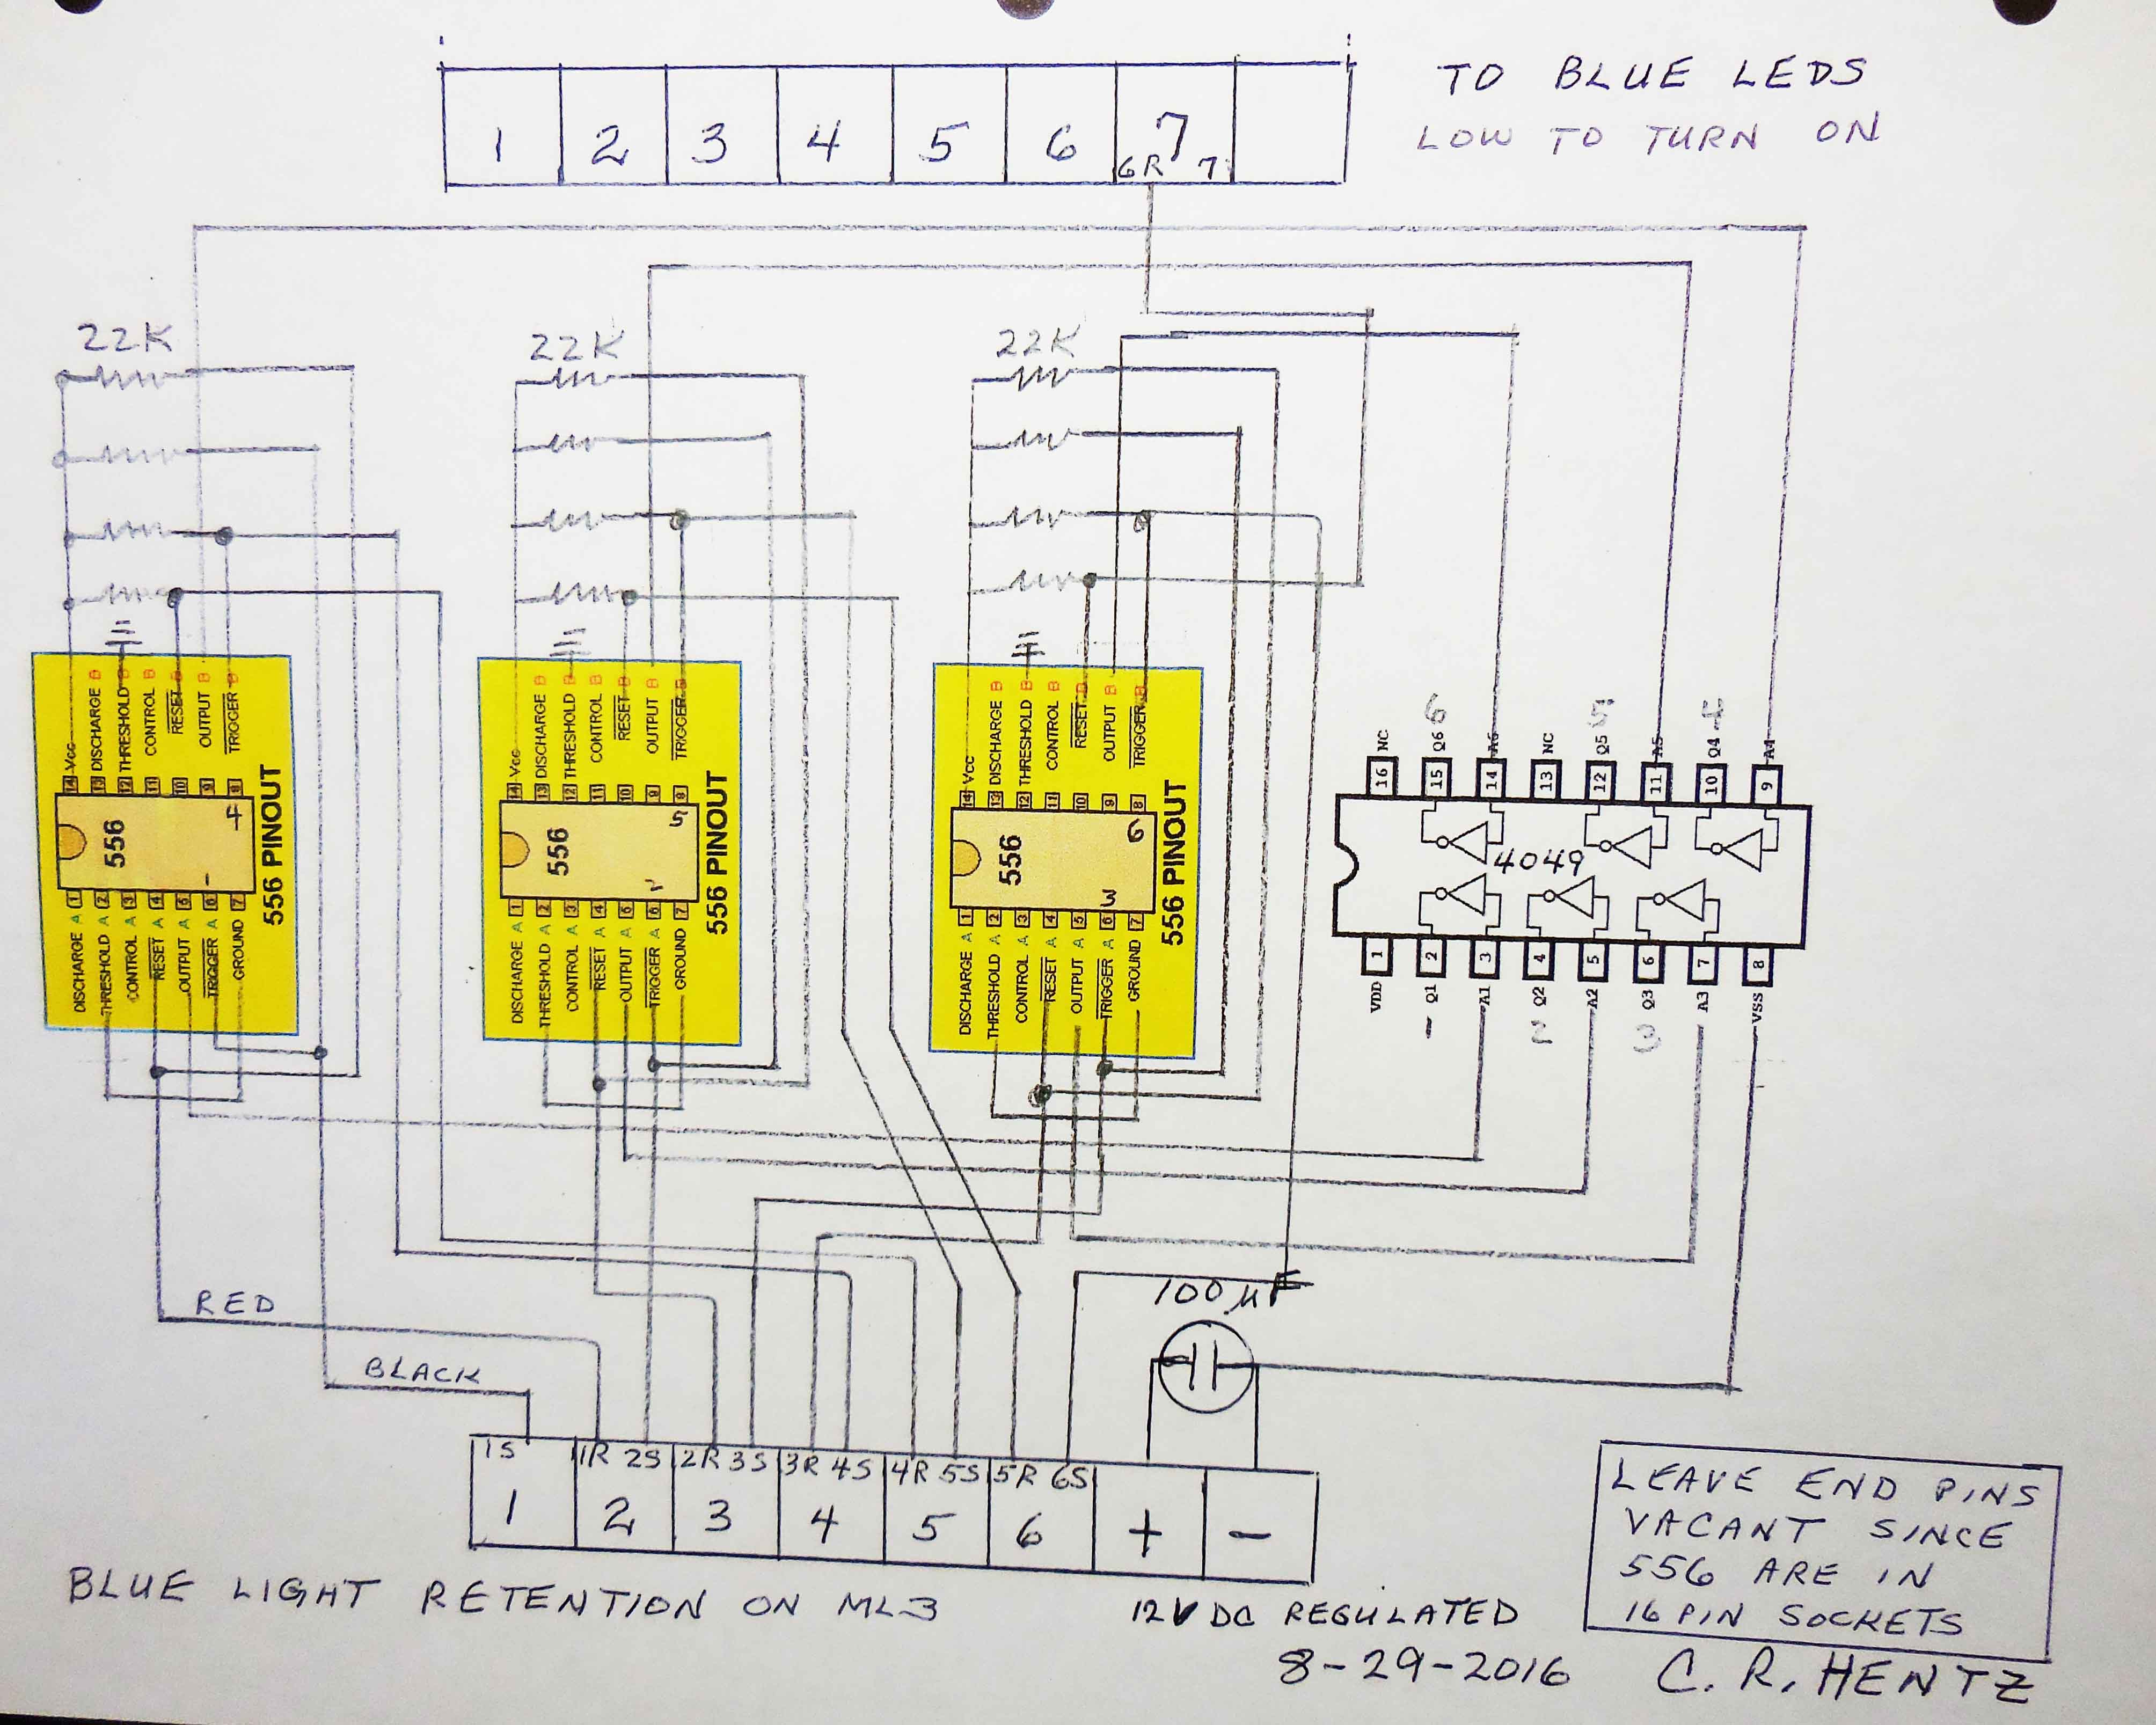 TO BLUE LEDS
LOW TO TURN ON
1 2 3 4 5 6 7
6R 7
22K 22K 22K
14 Vcc
13 DISCHARGE B
12 THRESHOLD B
11 CONTROL B
10 RESET B
9 OUTPUT B
8 TRIGGER B
556
4
1
DISCHARGE A 1
THRESHOLD A 2
CONTROL A 3
RESET A 4
OUTPUT A 5
TRIGGER A 6
GROUND 7
556 PINOUT
14 Vcc
13 DISCHARGE B
12 THRESHOLD B
11 CONTROL B
10 RESET B
9 OUTPUT B
8 TRIGGER B
556
5
2
DISCHARGE A 1
THRESHOLD A 2
CONTROL A 3
RESET A 4
OUTPUT A 5
TRIGGER A 6
GROUND 7
556 PINOUT
14 Vcc
13 DISCHARGE B
12 THRESHOLD B
11 CONTROL B
10 RESET B
9 OUTPUT B
8 TRIGGER B
556
6
3
DISCHARGE A 1
THRESHOLD A 2
CONTROL A 3
RESET A 4
OUTPUT A 5
TRIGGER A 6
GROUND 7
556 PINOUT
6 5 4
NC Q6 A6 NC Q5 A5 Q4 A4
16 15 14 13 12 11 10 9
4049
1 2 3 4 5 6 7 8
VDD Q1 A1 Q2 A2 Q3 A3 VSS
1 2 3
RED
BLACK
100 µF
1S 1R 2S 2R 3S 3R 4S 4R 5S 5R 6S
1 2 3 4 5 6 + -
BLUE LIGHT RETENTION ON ML3
12V DC REGULATED
8-29-2016
LEAVE END PINS
VACANT SINCE
556 ARE IN
16 PIN SOCKETS
C. R. HENTZ